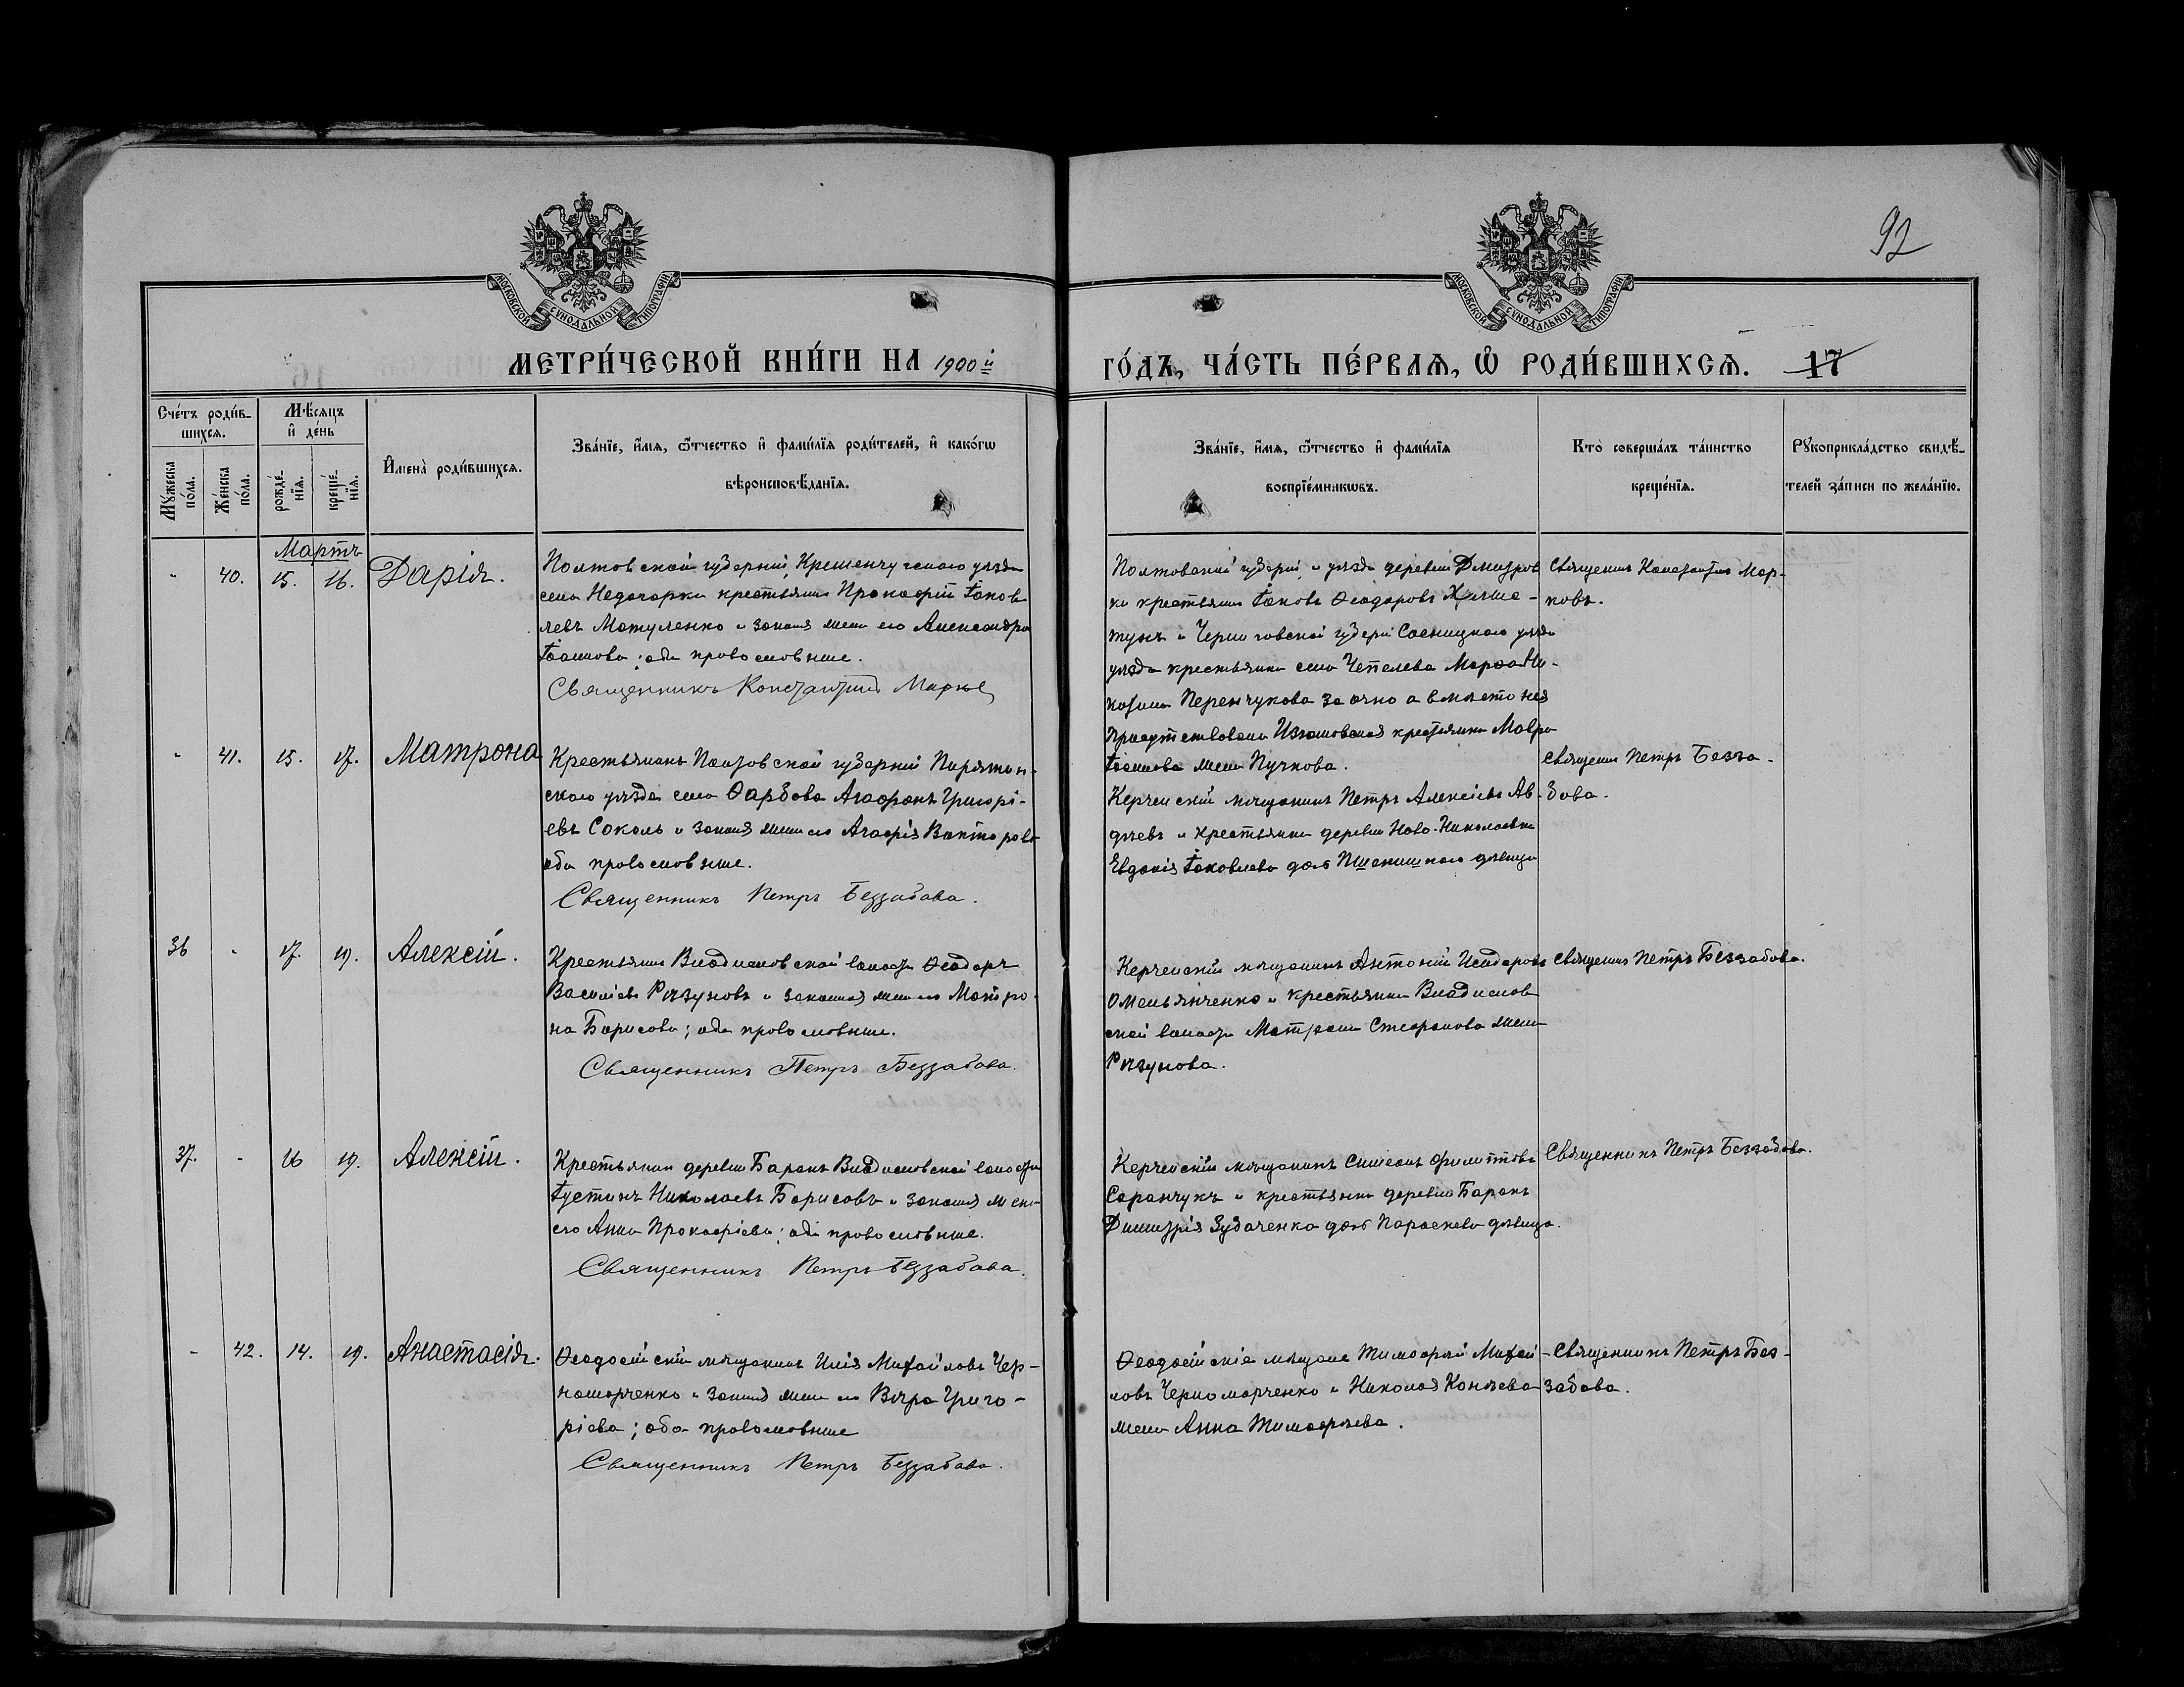 92
МОСКОВСКОЙ СѴНОДАЛЬНОЙ ТИПОГРАФІИ
МОСКОВСКОЙ СѴНОДАЛЬНОЙ ТИПОГРАФІИ
МЕТРИ́ЧЕСКОЙ КНИ́ГИ НА 1900й
ГО́ДЪ, ЧА́СТЬ ПЕ́РВАѦ, Ѽ РОДИ́ВШИХСѦ. 17
Сче́тъ роди́в-
шихсѧ.
Мꙋ́жеска по́ла.
Же́нска по́ла.
Мѣ́сѧцъ и де́нь
рожде́-нїѧ.
креще́-нїѧ.
Имена̀ роди́вшихсѧ.
Зва́нїе, и́мѧ, ѻ҆́тчество и фами́лїѧ роди́телей, и како́гѡ
вѣроисповѣ́данїѧ.
Зва́нїе, и́мѧ, ѻ҆́тчество и фами́лїѧ
воспрїе́мникѡвъ.
Кто̀ соверша́лъ та́инство
креще́нїѧ.
Рꙋкоприкла́дство свидѣ́-
телей за́писи по жела́нїю.
Мартъ
- 40. 15. 16. Дарія.
Полтовской губерніи, Кременчугскаго уѣзда
села Недогарки крестьянинъ Прокофій Іаков
левъ Мотуленко и законая жена его Александра
Іоаннова; оба православные.
Священникъ Константинъ Марков
Полтовской губерніи, и уѣзда деревни Дмитров
ки крестьянинъ Іаковъ Ѳеодоровъ
тунъ и Черниговской губерніи Сосницкаго уѣзда
уѣзда крестьянка села Чепелева Марфа Ни-
Перенчукова заочно а вмѣсто нея
присутствовала крестьянка Мавра
Іоаннова жена Пучкова.
Священникъ Константинъ Мар-
ковъ.
- 41. 15. 17. Матрона
Крестьянинъ Полтовской губерніи Пирятин-
скаго уѣзда села Ѳарбова Агафонъ Григорі-
евъ Соколъ и законая жена его Агафія Викторова
оба православные.
Священникъ Петръ Беззабава.
Керченскій мѣщанинъ Петръ Алексѣевъ Ав-
дѣевъ и крестьянка деревни Ново-Николаевки
Евдокія Іаковлева дочь девица
Священник Петръ Безза-
бава.
36 - 17. 19. Алексій.
Крестьянин Владиславской волости Ѳеодоръ
Василіевъ Рѣзуновъ и законная жена его Матро-
на Борисова; оба православные.
Священникъ Петръ Беззабава.
Керченскій мѣщанинъ Антоній Исидоровъ
Омельянченко и крестьянка Владислав
ской волости Матрона Стефанова жена
Рѣзунова.
Священникъ Петръ Беззабава.
37. - 16 19. Алексій.
Крестьянин деревни Баракъ Владиславской волости
Іустинъ Николаевъ Борисовъ и законая жена
его Анна Прокофіева; оба православные.
Священникъ Петръ Беззабава.
Керченскій мѣщанинъ Симеонъ Филипповъ
Саранчукъ и крестьянина деревни Баракъ
Димитрія Зубаченка дочь Параскева дѣвица.
Священникъ Петръ Беззабава.
- 42. 14. 19. Анастасія.
Ѳеодосійскій мѣщанинъ Илія Михайловъ Чер-
номорченко и законая жена его Вѣра Григо-
ріева; оба православные
Священникъ Петръ Беззабава.
Ѳеодосійскіе мѣщане Тимофей Михай-
ловъ Черноморченко и Николая Конѣева
жена Анна Тимофѣева.
Священникъ Петръ Без-
забава.